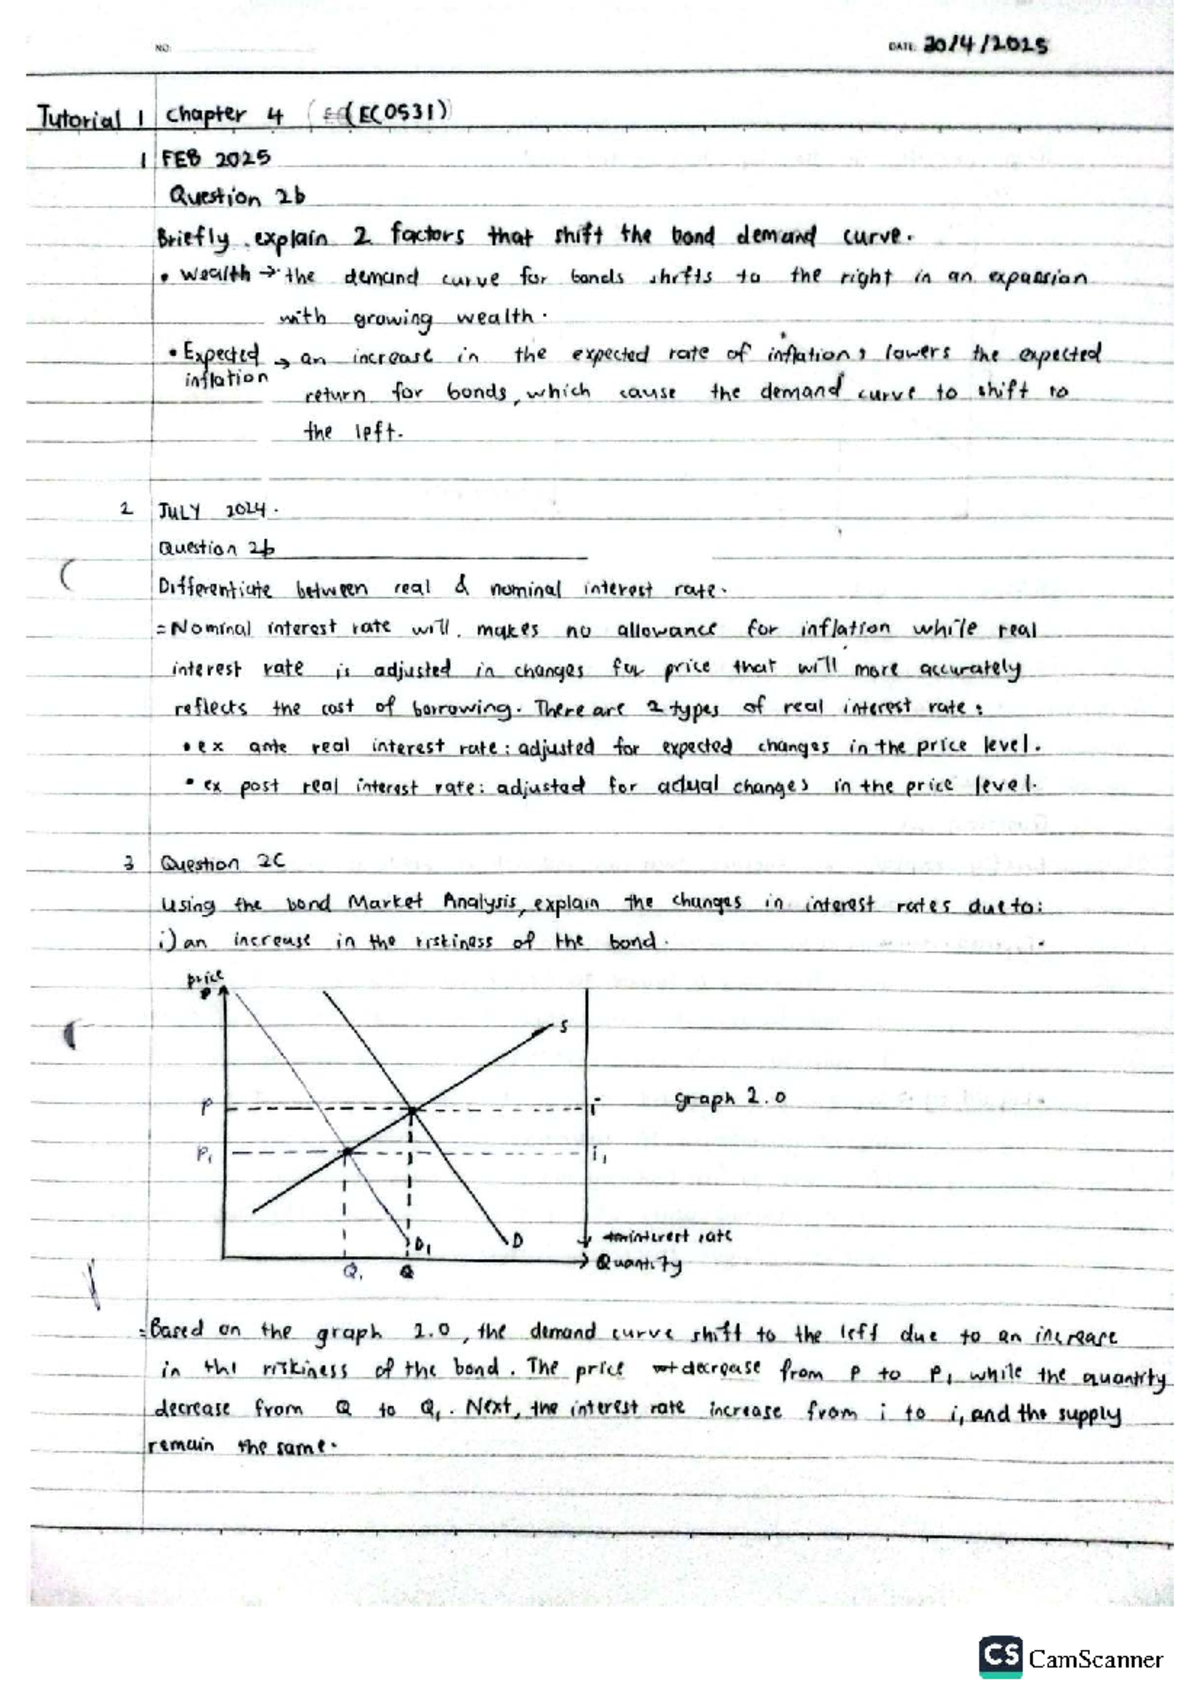 NO: DATE: 30/4/2025
Tutorial 1 Chapter 4 (ECO531)
1 FEB 2025
Question 2b
Briefly explain 2 factors that shift the bond demand curve.
• Wealth → the demand curve for bonds shifts to the right in an expansion
with growing wealth.
• Expected inflation → an increase in the expected rate of inflation, lowers the expected
return for bonds, which cause the demand curve to shift to
the left.
2 JULY 2024.
Question 2b
Differentiate between real & nominal interest rate.
= Nominal interest rate will makes no allowance for inflation while real
interest rate is adjusted in changes for price that will more accurately
reflects the cost of borrowing. There are 2 types of real interest rate:
• ex ante real interest rate: adjusted for expected changes in the price level.
• ex post real interest rate: adjusted for actual changes in the price level.
3 Question 2C
Using the bond Market Analysis, explain the changes in interest rates due to:
i) an increase in the riskiness of the bond.
price
P
S
P i graph 2.0
P₁ i₁
D₁ D interest rate
Quantity
Q₁ Q
= Based on the graph 2.0, the demand curve shift to the left due to an increase
in the riskiness of the bond. The price decrease from P to P₁ while the quantity
decrease from Q to Q₁. Next, the interest rate increase from i to i₁ and the supply
remain the same.
CS CamScanner